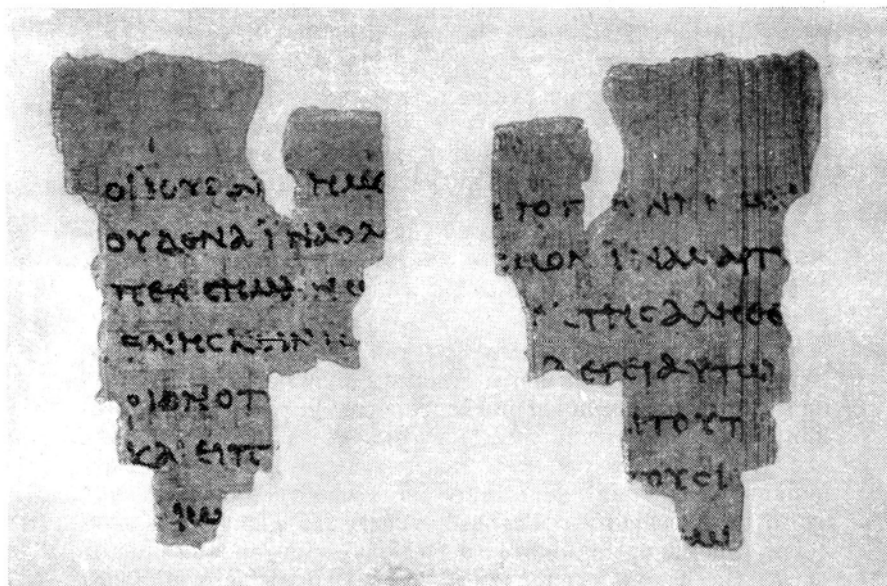 ΟΙ ΙΟΥΔΑΙ ΗΜΕ
ΟΥΔΕΝΑ ΪΝΑ Ο Λ
ΠΕΝ ϹΗΜΑΙΝΩ
ΘΝΗϹΚΕΙΝ
ΡΙΟΝ Ο Π
ΚΑΙ ΕΙΠ
ΤΟ Γ
ϹΜΟΝ ΪΝΑ ΜΑΡΤΥ
ΤΗϹ ΑΛΗΘΕ
ΛΕΓΕΙ ΑΥΤΩ
Ι ΤΟΥΤ
ΤΟΥϹ Ι
ΜΙ